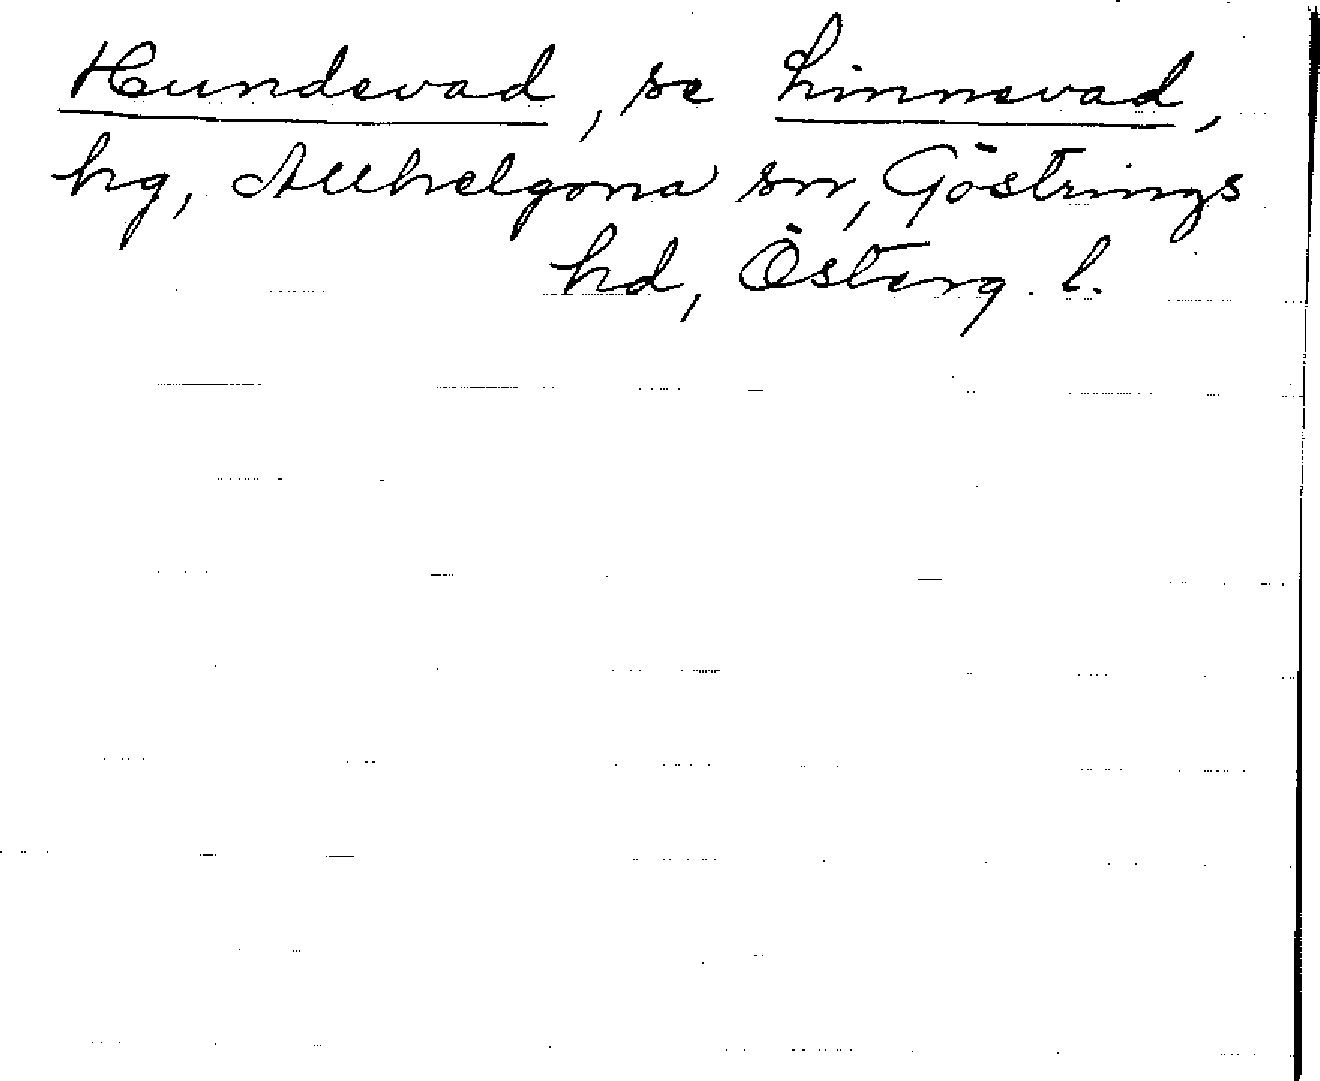 Hundevad, se Linnevad,
hg, Allhelgona sn, Göstrings
hd, Österg. l.